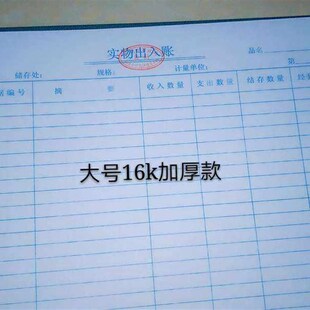 实物出入账
品名
储存处: 规格: 计量单位: 第
编号 摘 要 收入数量 支出数量 结存数量 经
大号16k加厚款